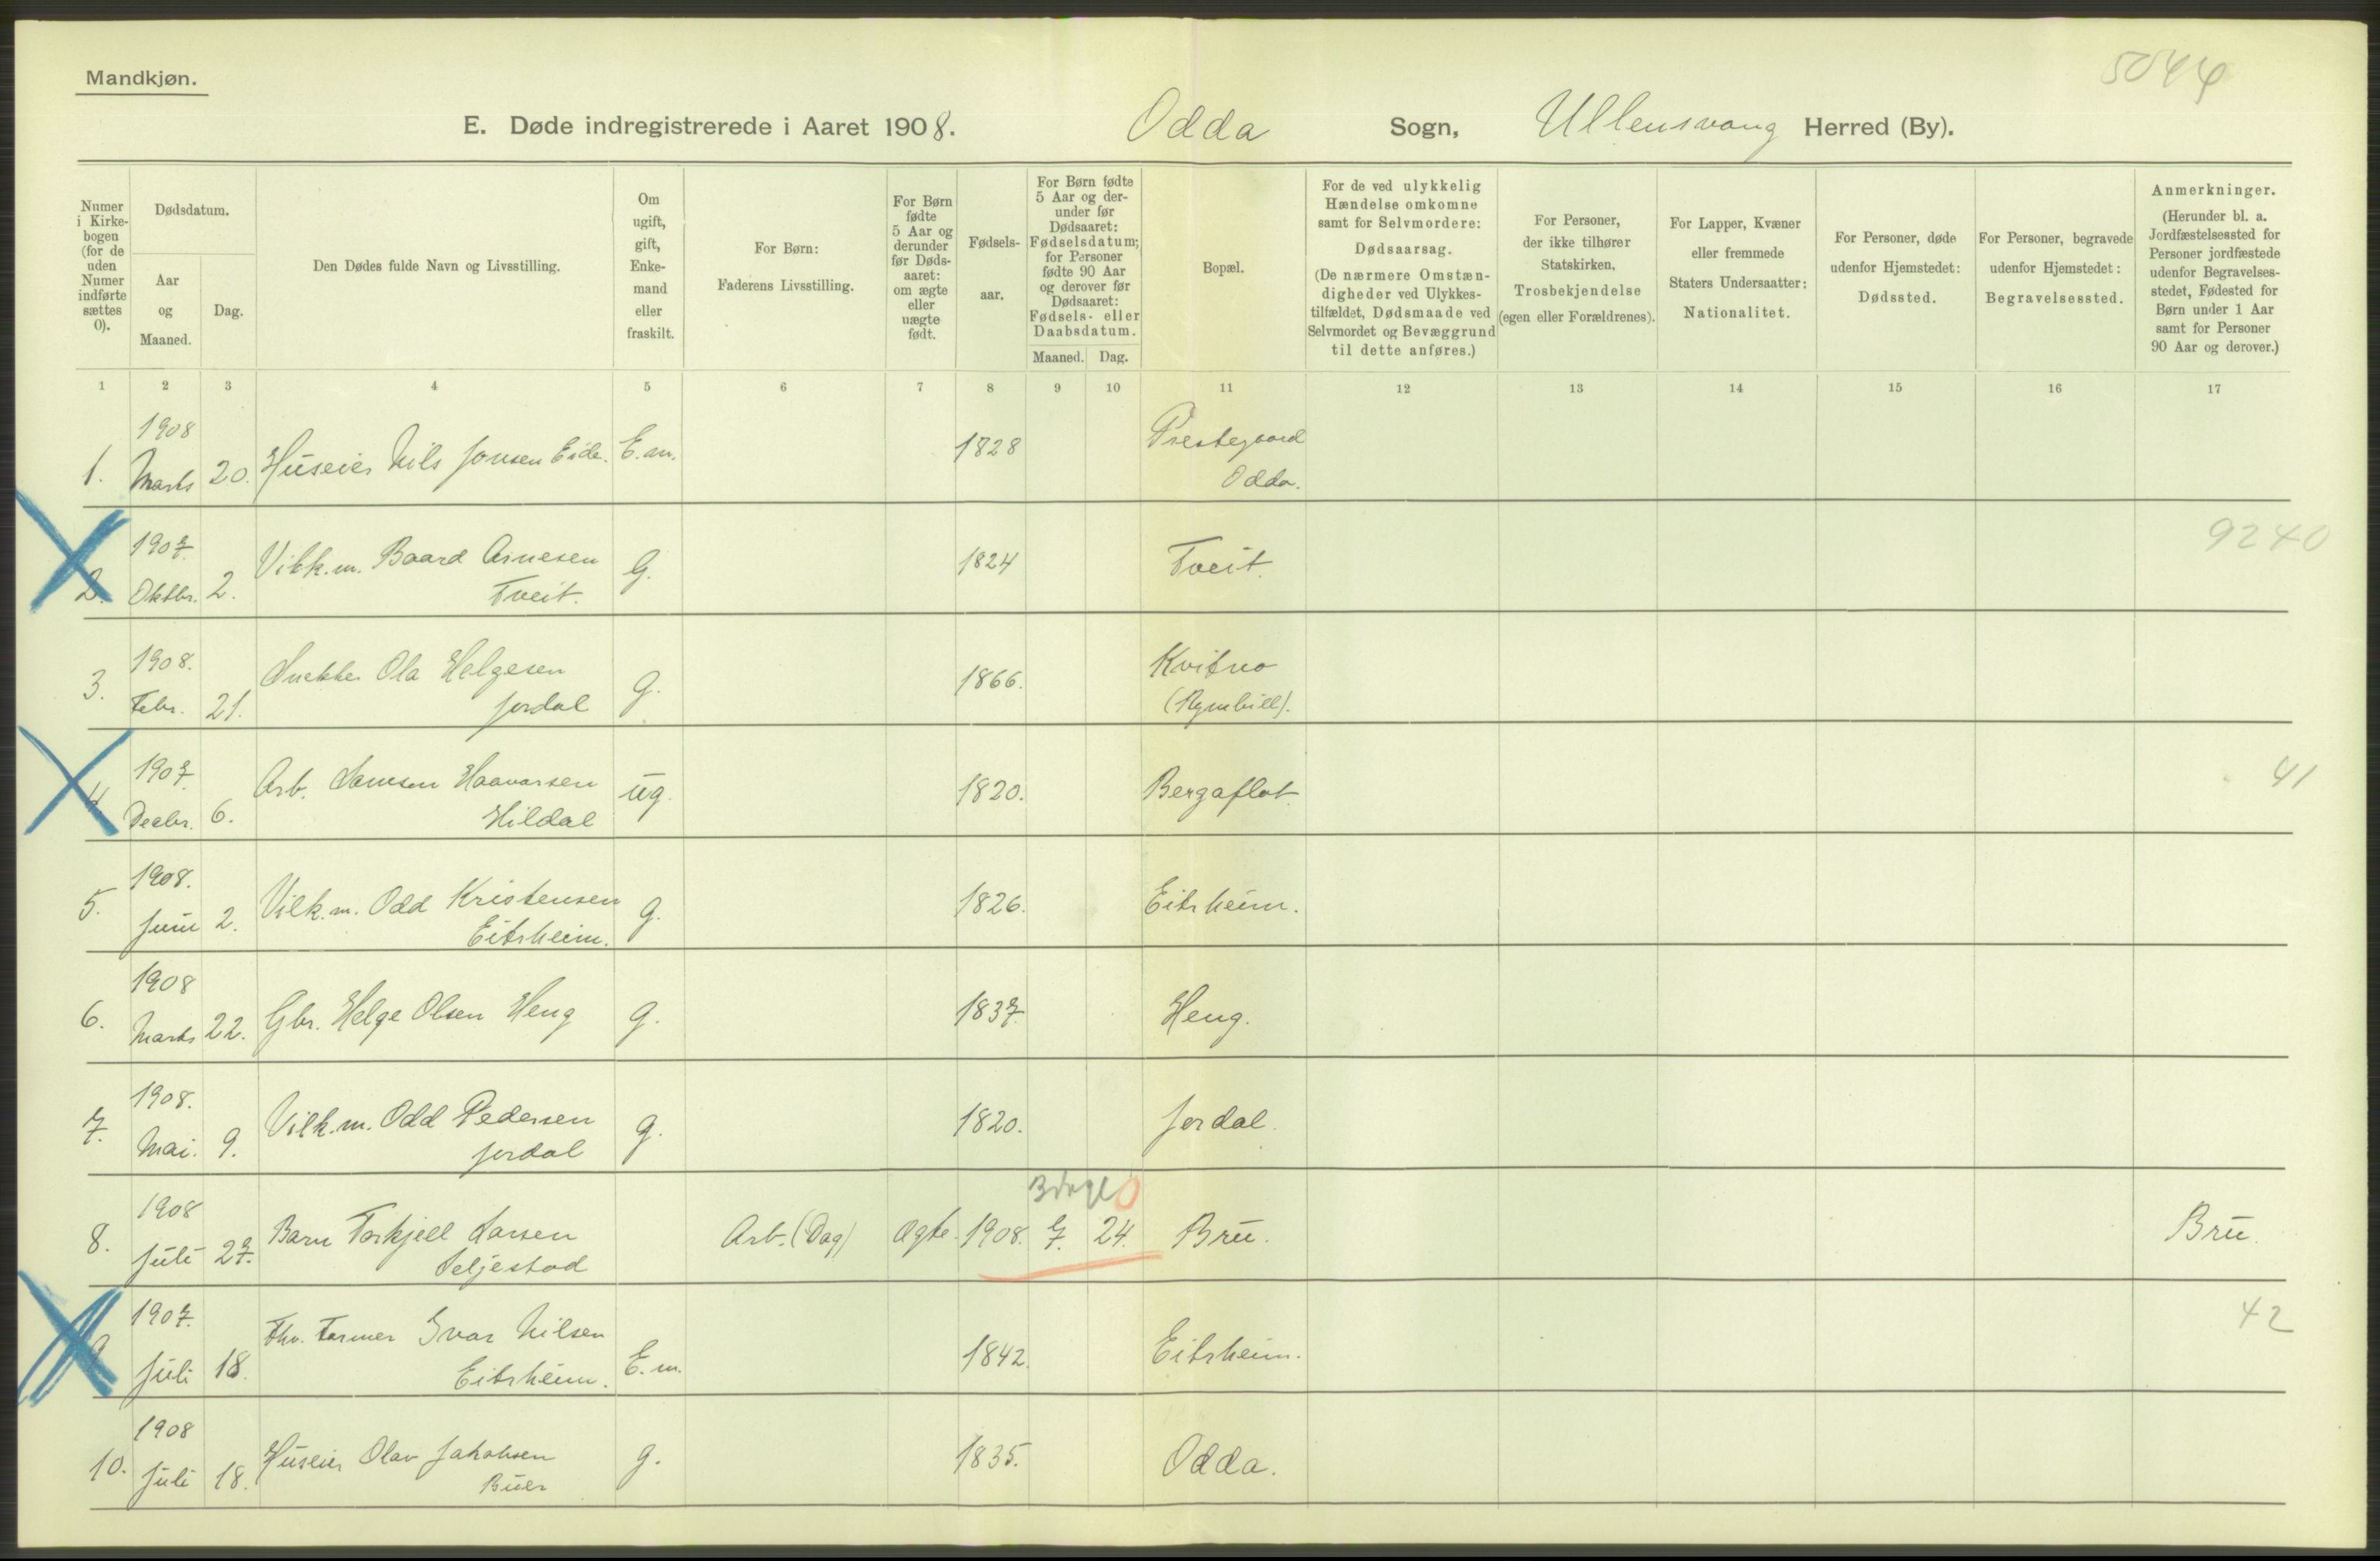 Mandkjøn.
5044
E. Døde indregistrerede i Aaret 1908. Odda Sogn, Ullensvang Herred (By).
Numer i Kirkebogen (for de uden Numer indførte sættes 0).
Dødsdatum.
Aar og Maaned.
Dag.
Den Dødes fulde Navn og Livsstilling.
Om ugift, gift, Enkemand eller fraskilt.
For Børn: Faderens Livsstilling.
For Børn fødte 5 Aar og derunder før Dødsaaret: om ægte eller uægte født.
Fødselsaar.
For Børn fødte 5 Aar og derunder før Dødsaaret: Fødselsdatum; for Personer fødte 90 Aar og derover før Dødsaaret: Fødsels- eller Daabsdatum.
Maaned. Dag.
Bopæl.
For de ved ulykkelig Hændelse omkomne samt for Selvmordere: Dødsaarsag.
(De nærmere Omstændigheder ved Ulykkestilfældet, Dødsmaade ved Selvmordet og Bevæggrund til dette anføres.)
For Personer, der ikke tilhører Statskirken, Trosbekjendelse (egen eller Forældrenes).
For Lapper, Kvæner eller fremmede Staters Undersaatter: Nationalitet.
For Personer, døde udenfor Hjemstedet: Dødssted.
For Personer, begravede udenfor Hjemstedet: Begravelsessted.
Anmerkninger.
(Herunder bl. a. Jordfæstelsessted for Personer jordfæstede udenfor Begravelsesstedet, Fødested for Børn under 1 Aar samt for Personer 90 Aar og derover.)
1 2 3 4 5 6 7 8 9 10 11 12 13 14 15 16 17
1. 1908 Marts 20. Huseier Nils Jonsen Eide. E.m. 1828 Prestegaard
Odda.
2. 1907. Oktbr. 2. Vilk.m. Baard Arnesen G. 1824 Tveit. 9240
Tveit.
3. 1908. Febr. 21. Snekker Ola Helgesen g. 1866. Kvitno
Jordal
4 1907. Decbr. 6. Arb. Samson Haavarsen ug. 1820. Bergaflot. 41
Hildal
5. 1908. Juni 2. Vilk.m. Odd Kristensen g. 1826. Eitrheim.
Eitrheim.
6. 1908 Marts 22. Gbr. Helge Olsen Heng g. 1837. Heng.
7. 1908. Mai. 9. Vilk.m. Odd Pedersen g. 1820. Jordal.
Jordal
3 dage 0
8. 1908 Juli 27. Barn Torkjell Larsen Arb. (Dag) Ægte. 1908. 7. 24. Bru. Bru.
Seljestad
9 1907. Juli 18. Fhv. Farmer Ivar Nilsen E.m. 1842. Eitrheim. 42
Eitrheim.
10. 1908 Juli 18. Huseier Olav Jakobsen g. 1835. Odda.
Buer